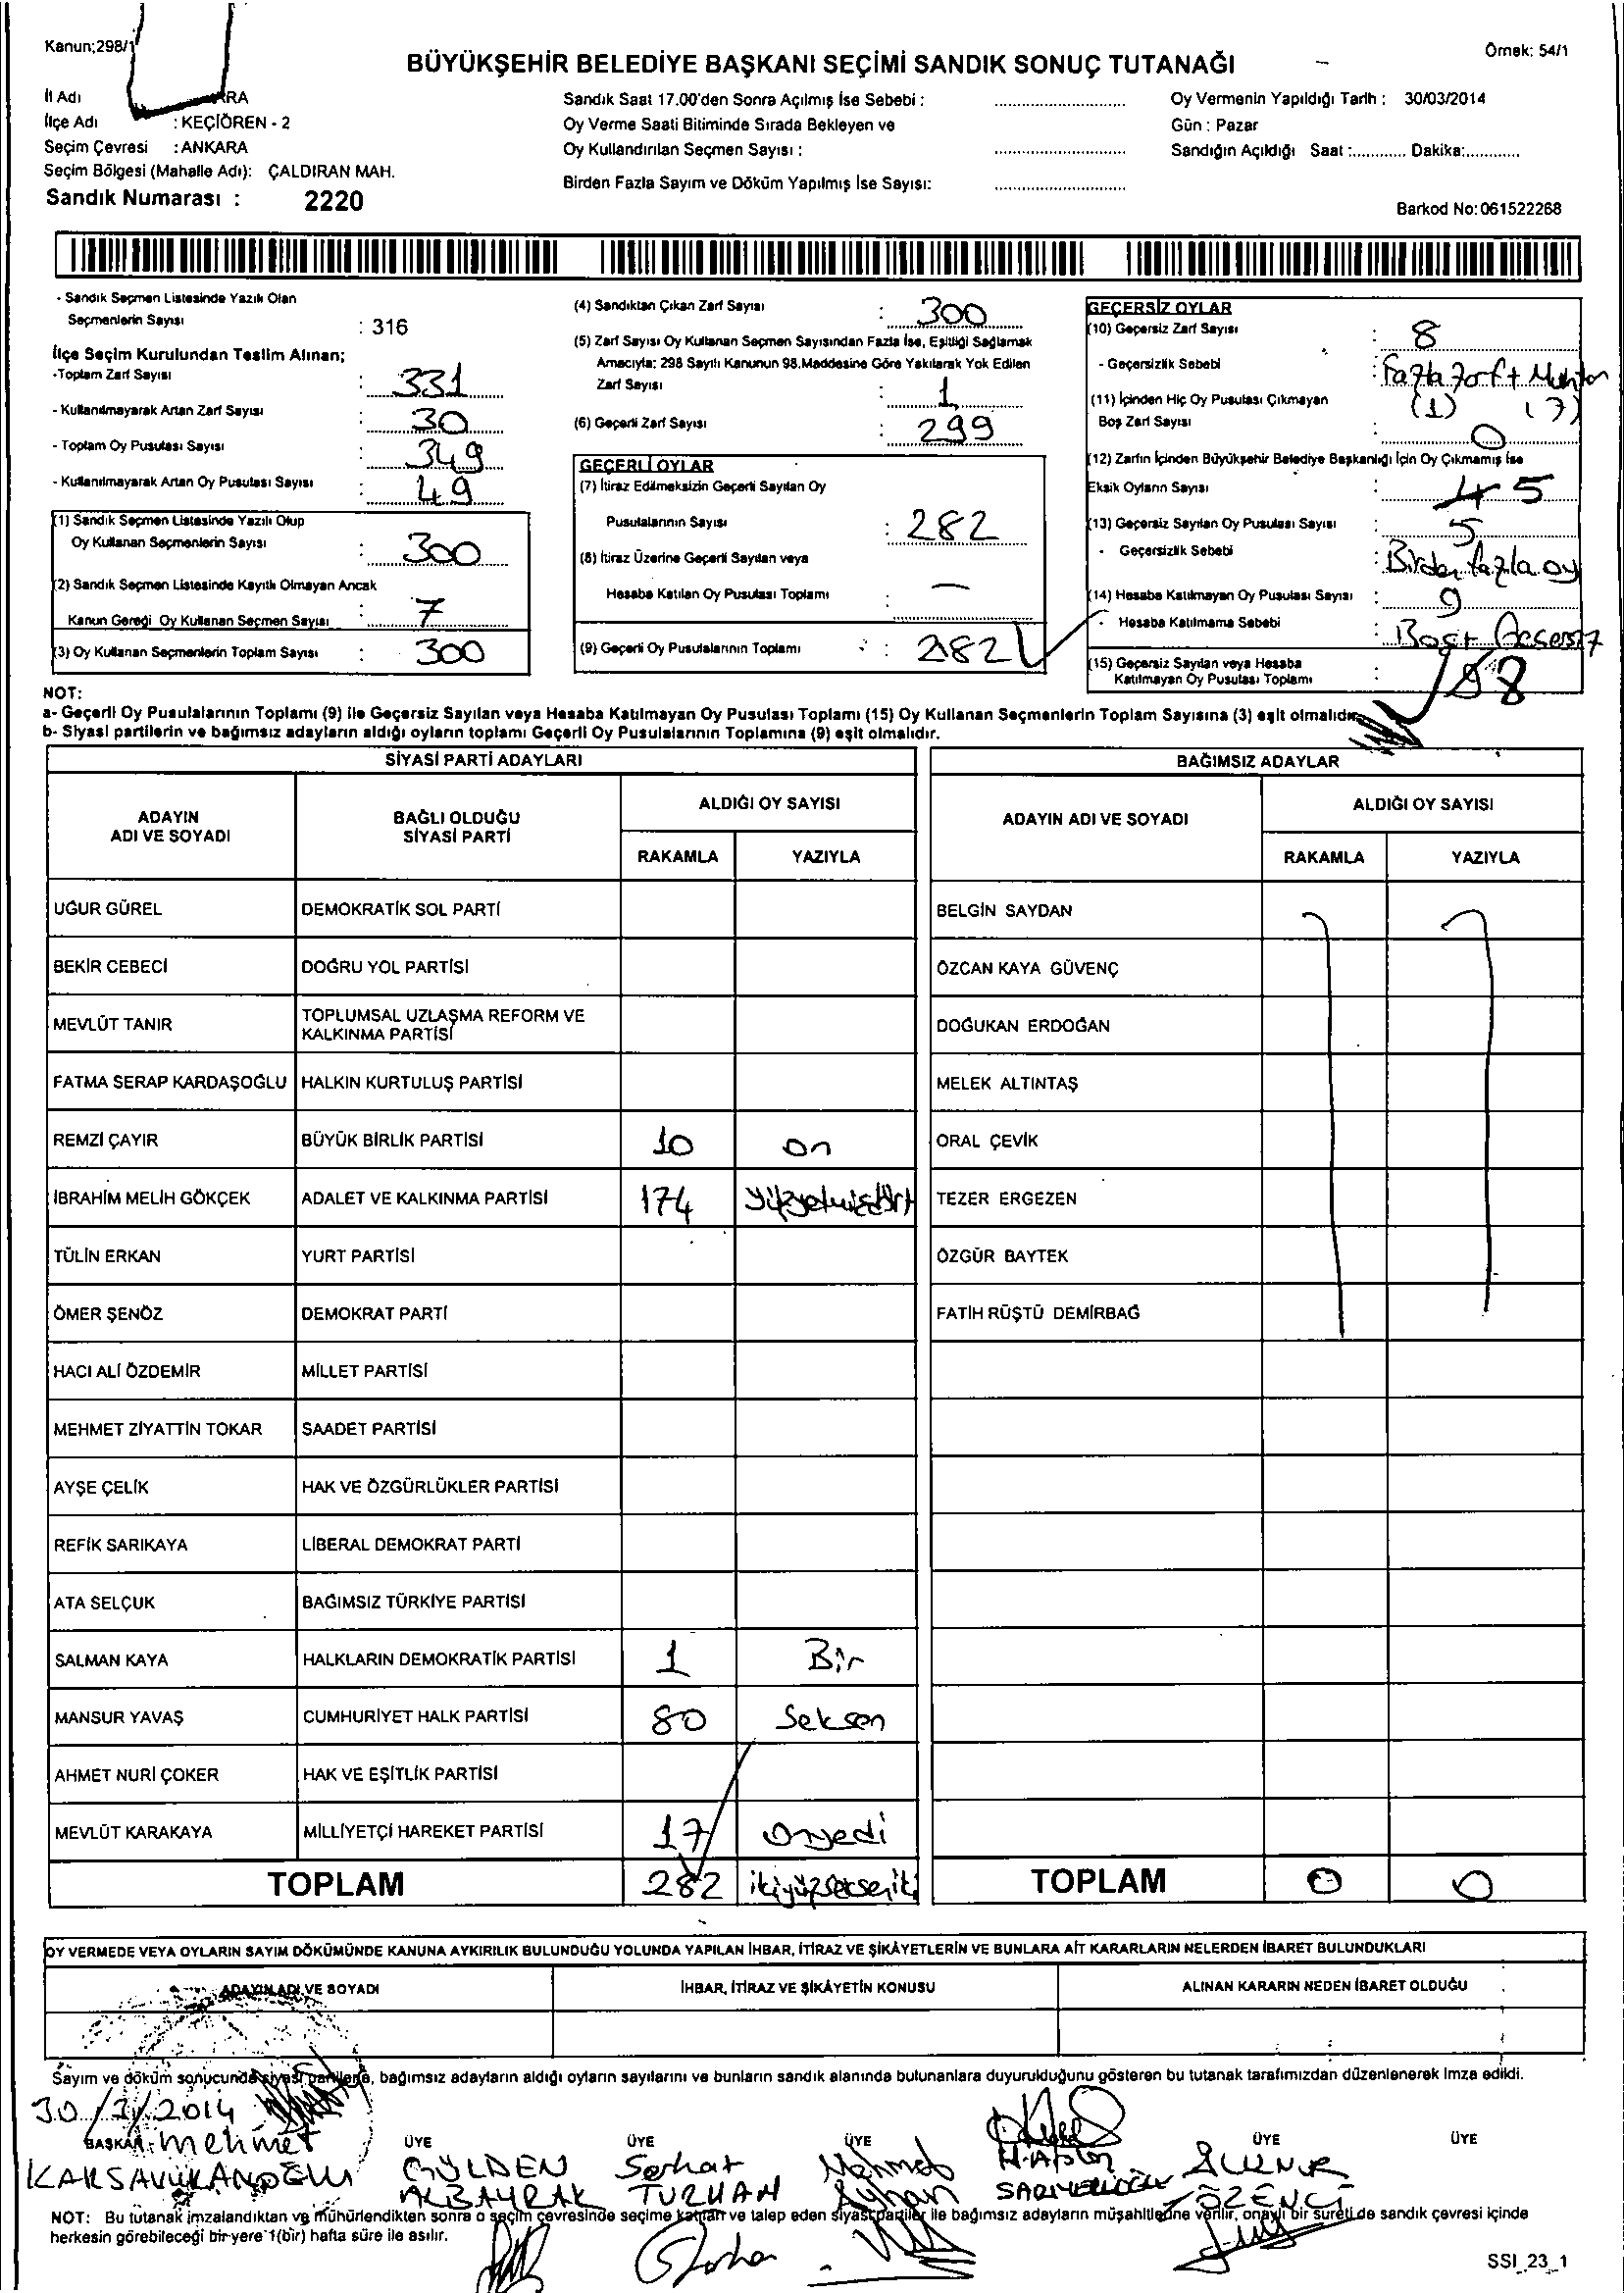 Kanun;298/1
Örnek: 54/1
BÜYÜKŞEHİR BELEDİYE BAŞKANI SEÇİMİ SANDIK SONUÇ TUTANAĞI
İl Adı RA
İlçe Adı : KEÇİÖREN - 2
Seçim Çevresi : ANKARA
Seçim Bölgesi (Mahalle Adı): ÇALDIRAN MAH.
Sandık Numarası : 2220
Sandık Saat 17.00'den Sonra Açılmış İse Sebebi :
Oy Verme Saati Bitiminde Sırada Bekleyen ve
Oy Kullandırılan Seçmen Sayısı :
Birden Fazla Sayım ve Döküm Yapılmış İse Sayısı:
Oy Vermenin Yapıldığı Tarih : 30/03/2014
Gün : Pazar
Sandığın Açıldığı Saat :............ Dakika:............
Barkod No: 061522268
- Sandık Seçmen Listesinde Yazılı Olan
Seçmenlerin Sayısı : 316
İlçe Seçim Kurulundan Teslim Alınan;
-Toplam Zarf Sayısı : 331
- Kullanılmayarak Artan Zarf Sayısı : 30
- Toplam Oy Pusulası Sayısı : 349
- Kullanılmayarak Artan Oy Pusulası Sayısı : 49
(1) Sandık Seçmen Listesinde Yazılı Olup
Oy Kullanan Seçmenlerin Sayısı : 300
(2) Sandık Seçmen Listesinde Kayıtlı Olmayan Ancak
Kanun Gereği Oy Kullanan Seçmen Sayısı : 7
(3) Oy Kullanan Seçmenlerin Toplam Sayısı : 300
(4) Sandıktan Çıkan Zarf Sayısı : 300
(5) Zarf Sayısı Oy Kullanan Seçmen Sayısından Fazla İse, Eşitliği Sağlamak
Amacıyla; 298 Sayılı Kanunun 98.Maddesine Göre Yakılarak Yok Edilen
Zarf Sayısı : 1
(6) Geçerli Zarf Sayısı : 299
GEÇERLİ OYLAR
(7) İtiraz Edilmeksizin Geçerli Sayılan Oy
Pusulalarının Sayısı : 282
(8) İtiraz Üzerine Geçerli Sayılan veya
Hesaba Katılan Oy Pusulası Toplamı : —
(9) Geçerli Oy Pusulalarının Toplamı : 282
GEÇERSİZ OYLAR
(10) Geçersiz Zarf Sayısı : 8
- Geçersizlik Sebebi : Fazla zarf +
(1) (7)
(11) İçinden Hiç Oy Pusulası Çıkmayan
Boş Zarf Sayısı : 0
(12) Zarfın İçinden Büyükşehir Belediye Başkanlığı İçin Oy Çıkmamış İse
Eksik Oyların Sayısı : 5
(13) Geçersiz Sayılan Oy Pusulası Sayısı : 5
- Geçersizlik Sebebi : Birden fazla oy
(14) Hesaba Katılmayan Oy Pusulası Sayısı : 9
- Hesaba Katılmama Sebebi :
(15) Geçersiz Sayılan veya Hesaba
Katılmayan Oy Pusulası Toplamı :
NOT:
a- Geçerli Oy Pusulalarının Toplamı (9) ile Geçersiz Sayılan veya Hesaba Katılmayan Oy Pusulası Toplamı (15) Oy Kullanan Seçmenlerin Toplam Sayısına (3) eşit olmalıdır.
b- Siyasi partilerin ve bağımsız adayların aldığı oyların toplamı Geçerli Oy Pusulalarının Toplamına (9) eşit olmalıdır.
SİYASİ PARTİ ADAYLARI
ADAYIN ADI VE SOYADI BAĞLI OLDUĞU SİYASİ PARTİ ALDIĞI OY SAYISI
RAKAMLA YAZIYLA
UĞUR GÜREL DEMOKRATİK SOL PARTİ
BEKİR CEBECİ DOĞRU YOL PARTİSİ
MEVLÜT TANIR TOPLUMSAL UZLAŞMA REFORM VE KALKINMA PARTİSİ
FATMA SERAP KARDAŞOĞLU HALKIN KURTULUŞ PARTİSİ
REMZİ ÇAYIR BÜYÜK BİRLİK PARTİSİ 10 on
İBRAHİM MELİH GÖKÇEK ADALET VE KALKINMA PARTİSİ 174 yüzyetmişdört
TÜLİN ERKAN YURT PARTİSİ
ÖMER ŞENÖZ DEMOKRAT PARTİ
HACI ALİ ÖZDEMİR MİLLET PARTİSİ
MEHMET ZİYATTİN TOKAR SAADET PARTİSİ
AYŞE ÇELİK HAK VE ÖZGÜRLÜKLER PARTİSİ
REFİK SARIKAYA LİBERAL DEMOKRAT PARTİ
ATA SELÇUK BAĞIMSIZ TÜRKİYE PARTİSİ
SALMAN KAYA HALKLARIN DEMOKRATİK PARTİSİ 1 Bir
MANSUR YAVAŞ CUMHURİYET HALK PARTİSİ 80 Seksen
AHMET NURİ ÇOKER HAK VE EŞİTLİK PARTİSİ
MEVLÜT KARAKAYA MİLLİYETÇİ HAREKET PARTİSİ 17 Onyedi
TOPLAM 282 ikiyüzsekseniki
BAĞIMSIZ ADAYLAR
ADAYIN ADI VE SOYADI ALDIĞI OY SAYISI
RAKAMLA YAZIYLA
BELGİN SAYDAN
ÖZCAN KAYA GÜVENÇ
DOĞUKAN ERDOĞAN
MELEK ALTINTAŞ
ORAL ÇEVİK
TEZER ERGEZEN
ÖZGÜR BAYTEK
FATİH RÜŞTÜ DEMİRBAĞ
TOPLAM 0 0
OY VERMEDE VEYA OYLARIN SAYIM DÖKÜMÜNDE KANUNA AYKIRILIK BULUNDUĞU YOLUNDA YAPILAN İHBAR, İTİRAZ VE ŞİKÂYETLERİN VE BUNLARA AİT KARARLARIN NELERDEN İBARET BULUNDUKLARI
ADAYIN ADI VE SOYADI İHBAR, İTİRAZ VE ŞİKÂYETİN KONUSU ALINAN KARARIN NEDEN İBARET OLDUĞU
Sayım ve döküm sonucunda siyasi partilerle, bağımsız adayların aldığı oyların sayılarını ve bunların sandık alanında bulunanlara duyurulduğunu gösteren bu tutanak tarafımızdan düzenlenerek imza edildi.
30/3/2014
BAŞKAN ÜYE ÜYE ÜYE ÜYE ÜYE
Mehmet GÜLDEN Serhat Mehmet
ALBAYRAK TURHAN Ayhan ÖZENCİ
NOT: Bu tutanak imzalandıktan ve mühürlendikten sonra o seçim çevresinde seçime katılan ve talep eden siyasi partiler ile bağımsız adayların müşahitlerine verilir, onaylı bir sureti de sandık çevresi içinde
herkesin görebileceği bir yere 1(bir) hafta süre ile asılır.
SSI_23_1